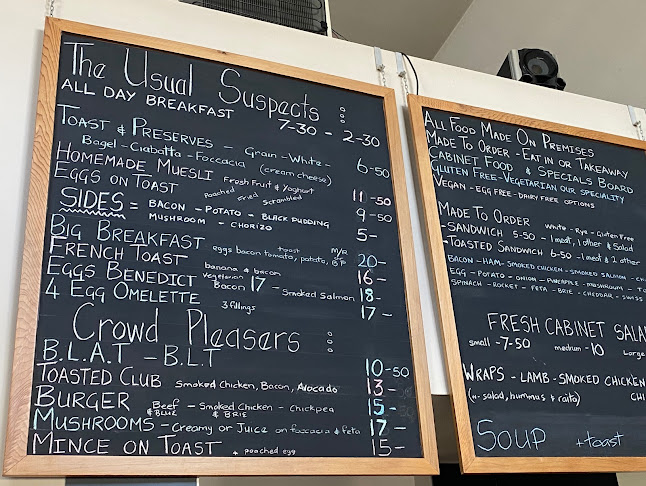 The Usual Suspects :
ALL DAY BREAKFAST 7-30 - 2-30
TOAST & PRESERVES - Grain - White -
Bagel - Ciabatta - Foccacia (cream cheese) 6-50
HOMEMADE MUESLI Fresh Fruit & Yoghurt 11-50
EGGS ON TOAST Poached Fried Scrambled 9-50
SIDES = BACON - POTATO - BLACK PUDDING
MUSHROOM - CHORIZO 5-
BIG BREAKFAST eggs bacon toast tomato, potato, 20-
FRENCH TOAST banana & bacon 16-
EGGS BENEDICT Vegetarian Bacon 17 - Smoked Salmon 18-
4 EGG OMELETTE 3 fillings 17-
Crowd Pleasers :
B.L.A.T - B.L.T 10-50
TOASTED CLUB Smoked Chicken, Bacon, Avocado 13-
BURGER Beef & BLUE - Smoked Chicken & BRIE - Chickpea 15-
MUSHROOMS - Creamy or Juice on foccacia & feta 17-
MINCE ON TOAST + poached egg 15-
ALL FOOD MADE ON PREMISES
MADE TO ORDER - EAT IN OR TAKEAWAY
CABINET FOOD & SPECIALS BOARD
GLUTEN FREE - VEGETARIAN OUR SPECIALITY
VEGAN - EGG FREE - DAIRY FREE OPTIONS
MADE TO ORDER White - Rye - Gluten Free
- SANDWICH 5-50 - 1 meat, 1 other & salad
- TOASTED SANDWICH 6-50 - 1 meat & 2 other
BACON - HAM - SMOKED CHICKEN - SMOKED SALMON -
EGG - POTATO - ONION - PINEAPPLE - MUSHROOM -
SPINACH - ROCKET - FETA - BRIE - CHEDDAR - SWISS
FRESH CABINET
small - 7-50 medium - 10 Large
WRAPS - LAMB - SMOKED CHICKEN
(w- salad, hummus & raita)
SOUP + toast